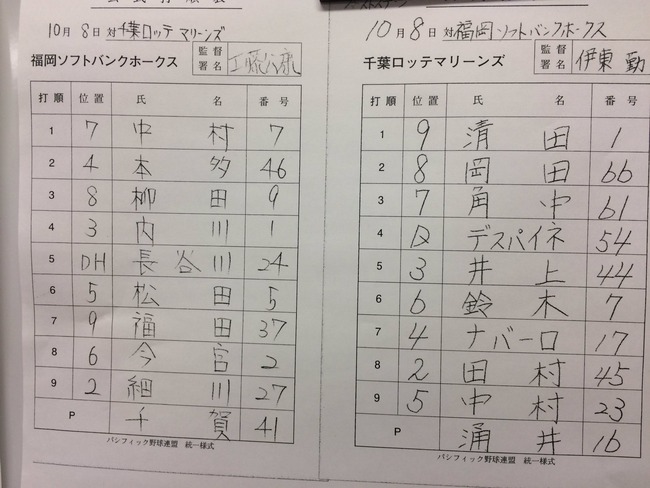 10月 8日 対 千葉ロッテ マリーンズ
福岡ソフトバンクホークス 監督署名 工藤公康
打順 位置 氏 名 番号
1 7 中 村 7
2 4 本 多 46
3 8 柳 田 9
4 3 内 川 1
5 DH 長 谷 川 24
6 5 松 田 5
7 9 福 田 37
8 6 今 宮 2
9 2 細 川 27
P 千 賀 41
パシフィック野球連盟 統一様式
10月 8日 対 福岡ソフトバンクホークス
千葉ロッテマリーンズ 監督署名 伊東 勤
打順 位置 氏 名 番号
1 9 清 田 1
2 8 岡 田 66
3 7 角 中 61
4 D デスパイネ 54
5 3 井 上 44
6 6 鈴 木 7
7 4 ナバーロ 17
8 2 田 村 45
9 5 中 村 23
P 涌 井 16
パシフィック野球連盟 統一様式